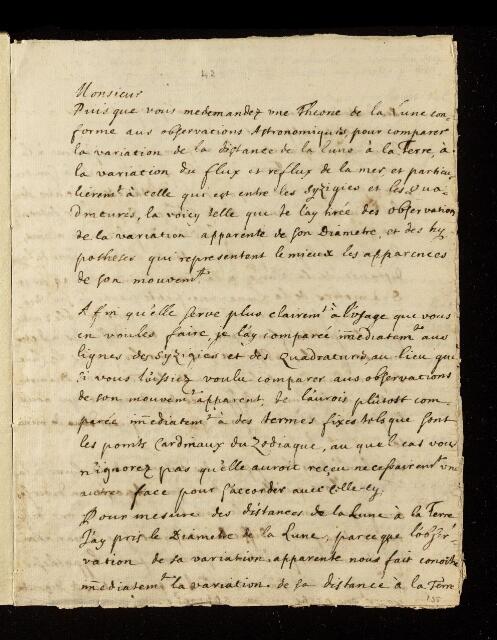 42
Monsieur
Puis que vous me demandez une Theorie de la Lune con-
forme aus observations Astronomiques, pour comparer
la variation de la distance de la Lune à la Terre, à
la variation du flux et reflux de la mer, et particu-
lierem.t à celle qui est entre les Syzigies et les Qua-
dratures, la voicy telle que je l'ay tirée des observation
de la variation apparente de son Diametre, et des hy
potheses qui representent le mieux les apparences
de son mouvem.t
Afin qu'elle serve plus clairem.t à l'usage que vous
en voules faire, je l'ay comparée immediatem.t aus
lignes des Syzigies et des Quadratures, au lieu que
si vous l'ussiez voulu comparer aus observations
de son mouvem.t apparent, je l'aurois plûtost com-
parée immediatem.t à des termes fixes tels que sont
les points Cardinaux du Zodiaque, au quel cas vous
n'ignorez pas qu'elle auroit reçeu necessairem.t une
autre face pour s'accorder avec celle-cy.
Pour mesure des distances de la Lune à la Terre
J'ay pris le Diametre de la Lune, parceque l'obser-
vation de sa variation apparente nous fait conoitre
immediatem.t la variation de sa distance à la Terre